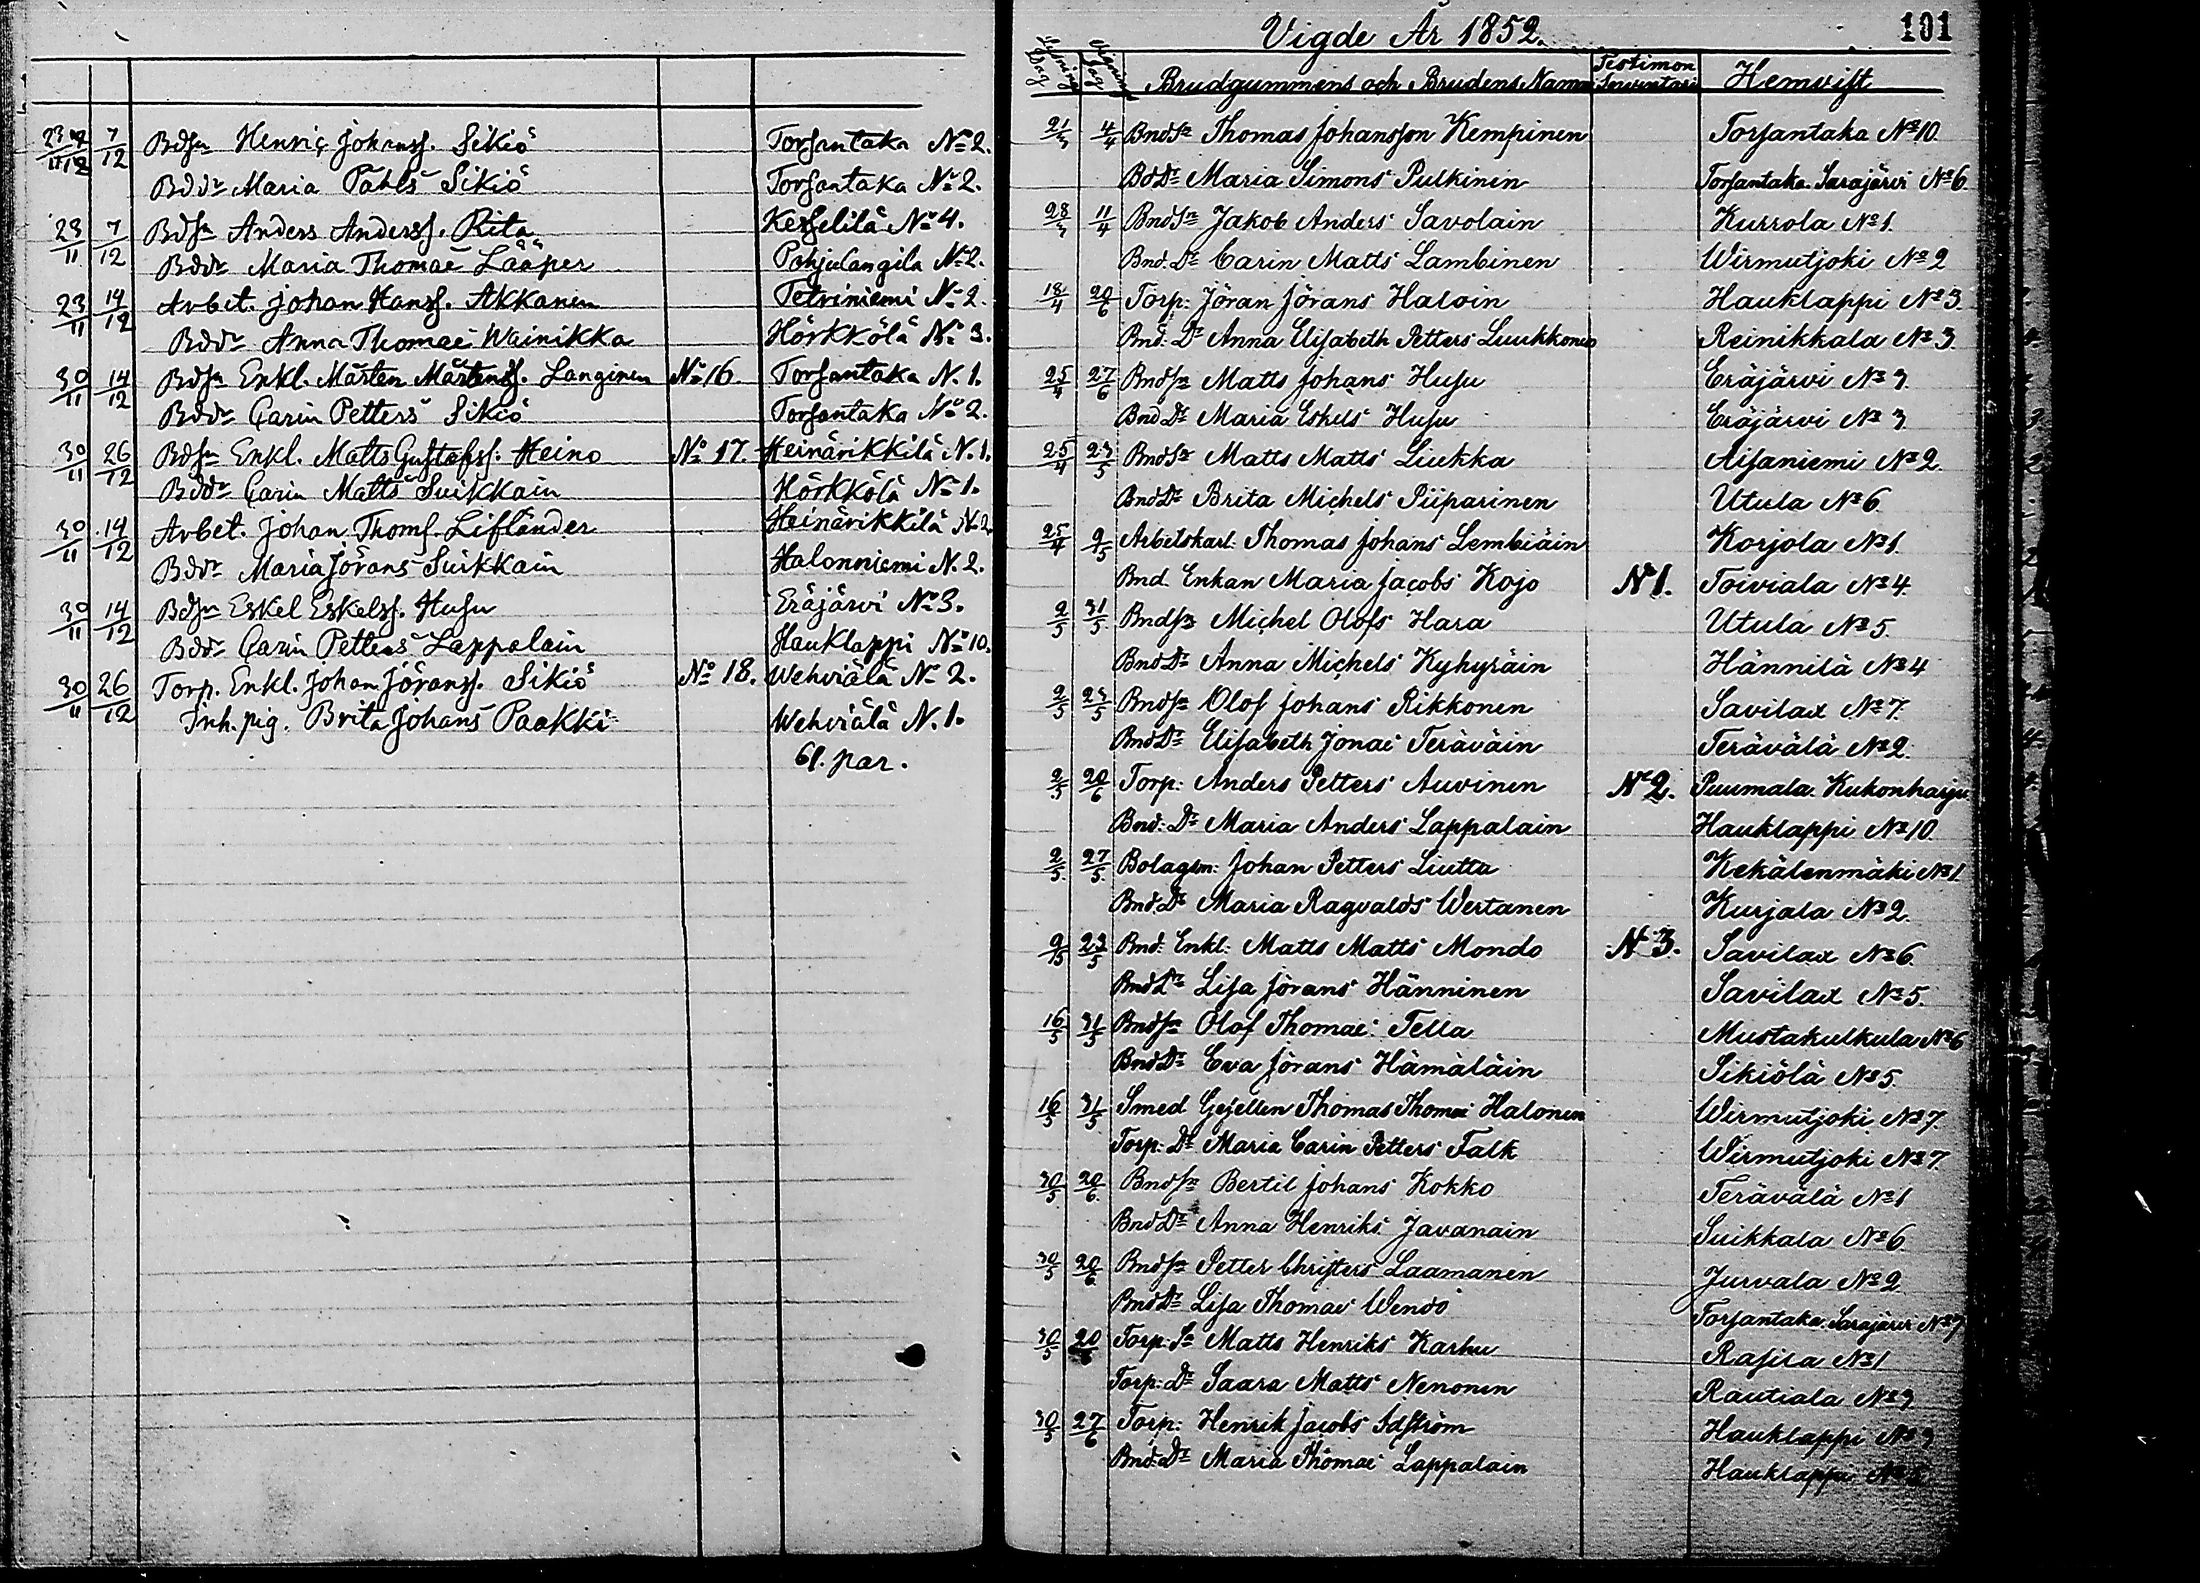 23 11 7/12 Bdsn Henric Johanss. Sikiö Torsantaka No 2.
Bddr Maria Pahls Sikiö Torsantaka No 2.
23/11 7/12 Bdsn Anders Anderss. Rita Keskelilä No 4.
Bddr Maria Thomae Lääper Pohjulangila No 2.
23/11 14/12 Arbet. Johan Hanss. Akkanen Tetriniemi No 2.
Bddr Anna Thomae Wainikka Hörkkölä No 3.
30/11 14/12 Bdsn Enkl. Mårten Mårtenss. Langinen No 16. Torsantaka N. 1.
Bddr Carin Petters Sikiö Torsantaka No 2.
30/11 26/12 Bdsn Enkl. Matts Gustafss. Heino No 17. Heinärikkilä N. 1.
Bddr Carin Matts Suikkain Hörkkölä No 1.
30/11 14/12 Arbet. Johan Thoms. Lifländer Heinärikkilä N. 2.
Bddr Maria Jörans Suikkain Halonniemi N. 2.
30/11 14/12 Bdsn Eskel Eskelss. Husu Eräjärvi No 3.
Bddr Carin Petters Lappalain Hauklappi No 10.
30/11 26/12 Torp. Enkl. Johan Jöranss. Sikiö No 18. Wehviälä No 2.
Inh. pig. Brita Johans Paakki Wehviälä N. 1.
61. par.
Vigde År 1852. 101
Lysnings Dag Vignings Dag Brudgummens och Brudens Namn Testimon Hemvist
21/3 4/4 Bndsn Thomas Johansson Kempinen Torsantaka No 10.
BdDr Maria Simons Pulkinen Torsantaka Sarajärvi No 6.
28/3 11/4 Bndsn Jakob Anders Savolain Kurrola No 1.
Bnd. Dr Carin Matts Lambinen Wirmutjoki No 2
18/4 20/6 Torp: Jöran Jörans Haloin Hauklappi No 3.
Bnd. Dr Anna Elisabeth Petters Luukkonen Reinikkala No 3.
25/4 27/6 Bndsn Matts Johans Husu Eräjärvi No 3.
Bnd Dr Maria Eskels Husu Eräjärvi No 3
25/4 23/5 Bndsn Matts Matts Liukka Aisaniemi No 2.
BndDr Brita Michels Piiparinen Utula No 6.
25/4 9/5 Arbetskarl: Thomas Johans Lembiäin Korjola No 1.
Bnd. Enkan Maria Jacobs Kojo No 1. Toiviala No 4.
2/5 31/5 Bndsn Michel Olofs Hara Utula No 5.
BndDr Anna Michels Kyhyräin Hännilä No 4
2/5 23/5 Bndsn Olof Johans Rikkonen Savilax No 7.
BndDr Elisabeth Jonae Teräväin Terävälä No 2.
2/5 20/6 Torp: Anders Petters Auvinen No 2. Puumala. Kukonharju
Bnd: Dr Maria Anders Lappalain Hauklappi No 10.
2/5 27/5 Bolagsm: Johan Petters Liutta Kekälenmäki No 1.
Bnd: Dr Maria Ragvalds Wertanen Kurjala No 2.
9/5 23/5 Bnd: Enkl: Matts Matts Mondo No 3. Savilax No 6.
BndDr Lisa Jörans Hänninen Savilax No 5.
16/5 31/5 Bndsn Olof Thomae Tella Mustakulkula No 6
BndDr Eva Jörans Hämäläin Sikiölä No 5.
16/5 31/5 Smed Gesellen Thomas Thomae Halonen Wirmutjoki No 7.
Torp: Dr Maria Carin Petters Falk Wirmutjoki No 7.
30/5 20/6 Bndsn Bertil Johans Kokko Terävälä No 1
BndDr Anna Henriks Javanain Suikkala No 6.
30/5 20/6 Bndsn Petter Christers Laamanen Jurvala No 2
BndDr Lisa Thomae Wendo Torsantaka. Sarajärvi No 7
30/5 20/6 Torp: Sn Matts Henriks Karhu Rasila No 1
Torp: Dr Saara Matts Nenonen Rautiala No 3
30/5 27/6 Torp: Henrik Jacobs Idström Hauklappi No 3
Bnd: Dr Maria Thomae Lappalain Hauklappi